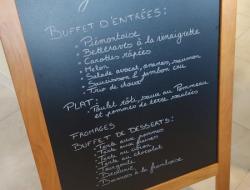 BUFFET D'ENTRÉES:
- Piémontaise
- Betteraves à la vinaigrette
- Carottes râpées
- Melon
- Salade avocat, ananas, saumon
- Saucisson & jambon cru
- Trio de choux
PLAT: Poulet rôti, sauce au Pommeau
et pommes de terre rissolées
FROMAGES
BUFFET DE DESSERTS:
- Tarte aux pommes
- Tarte aux
- Tarte au citron
- Tarte au chocolat
- à la framboise